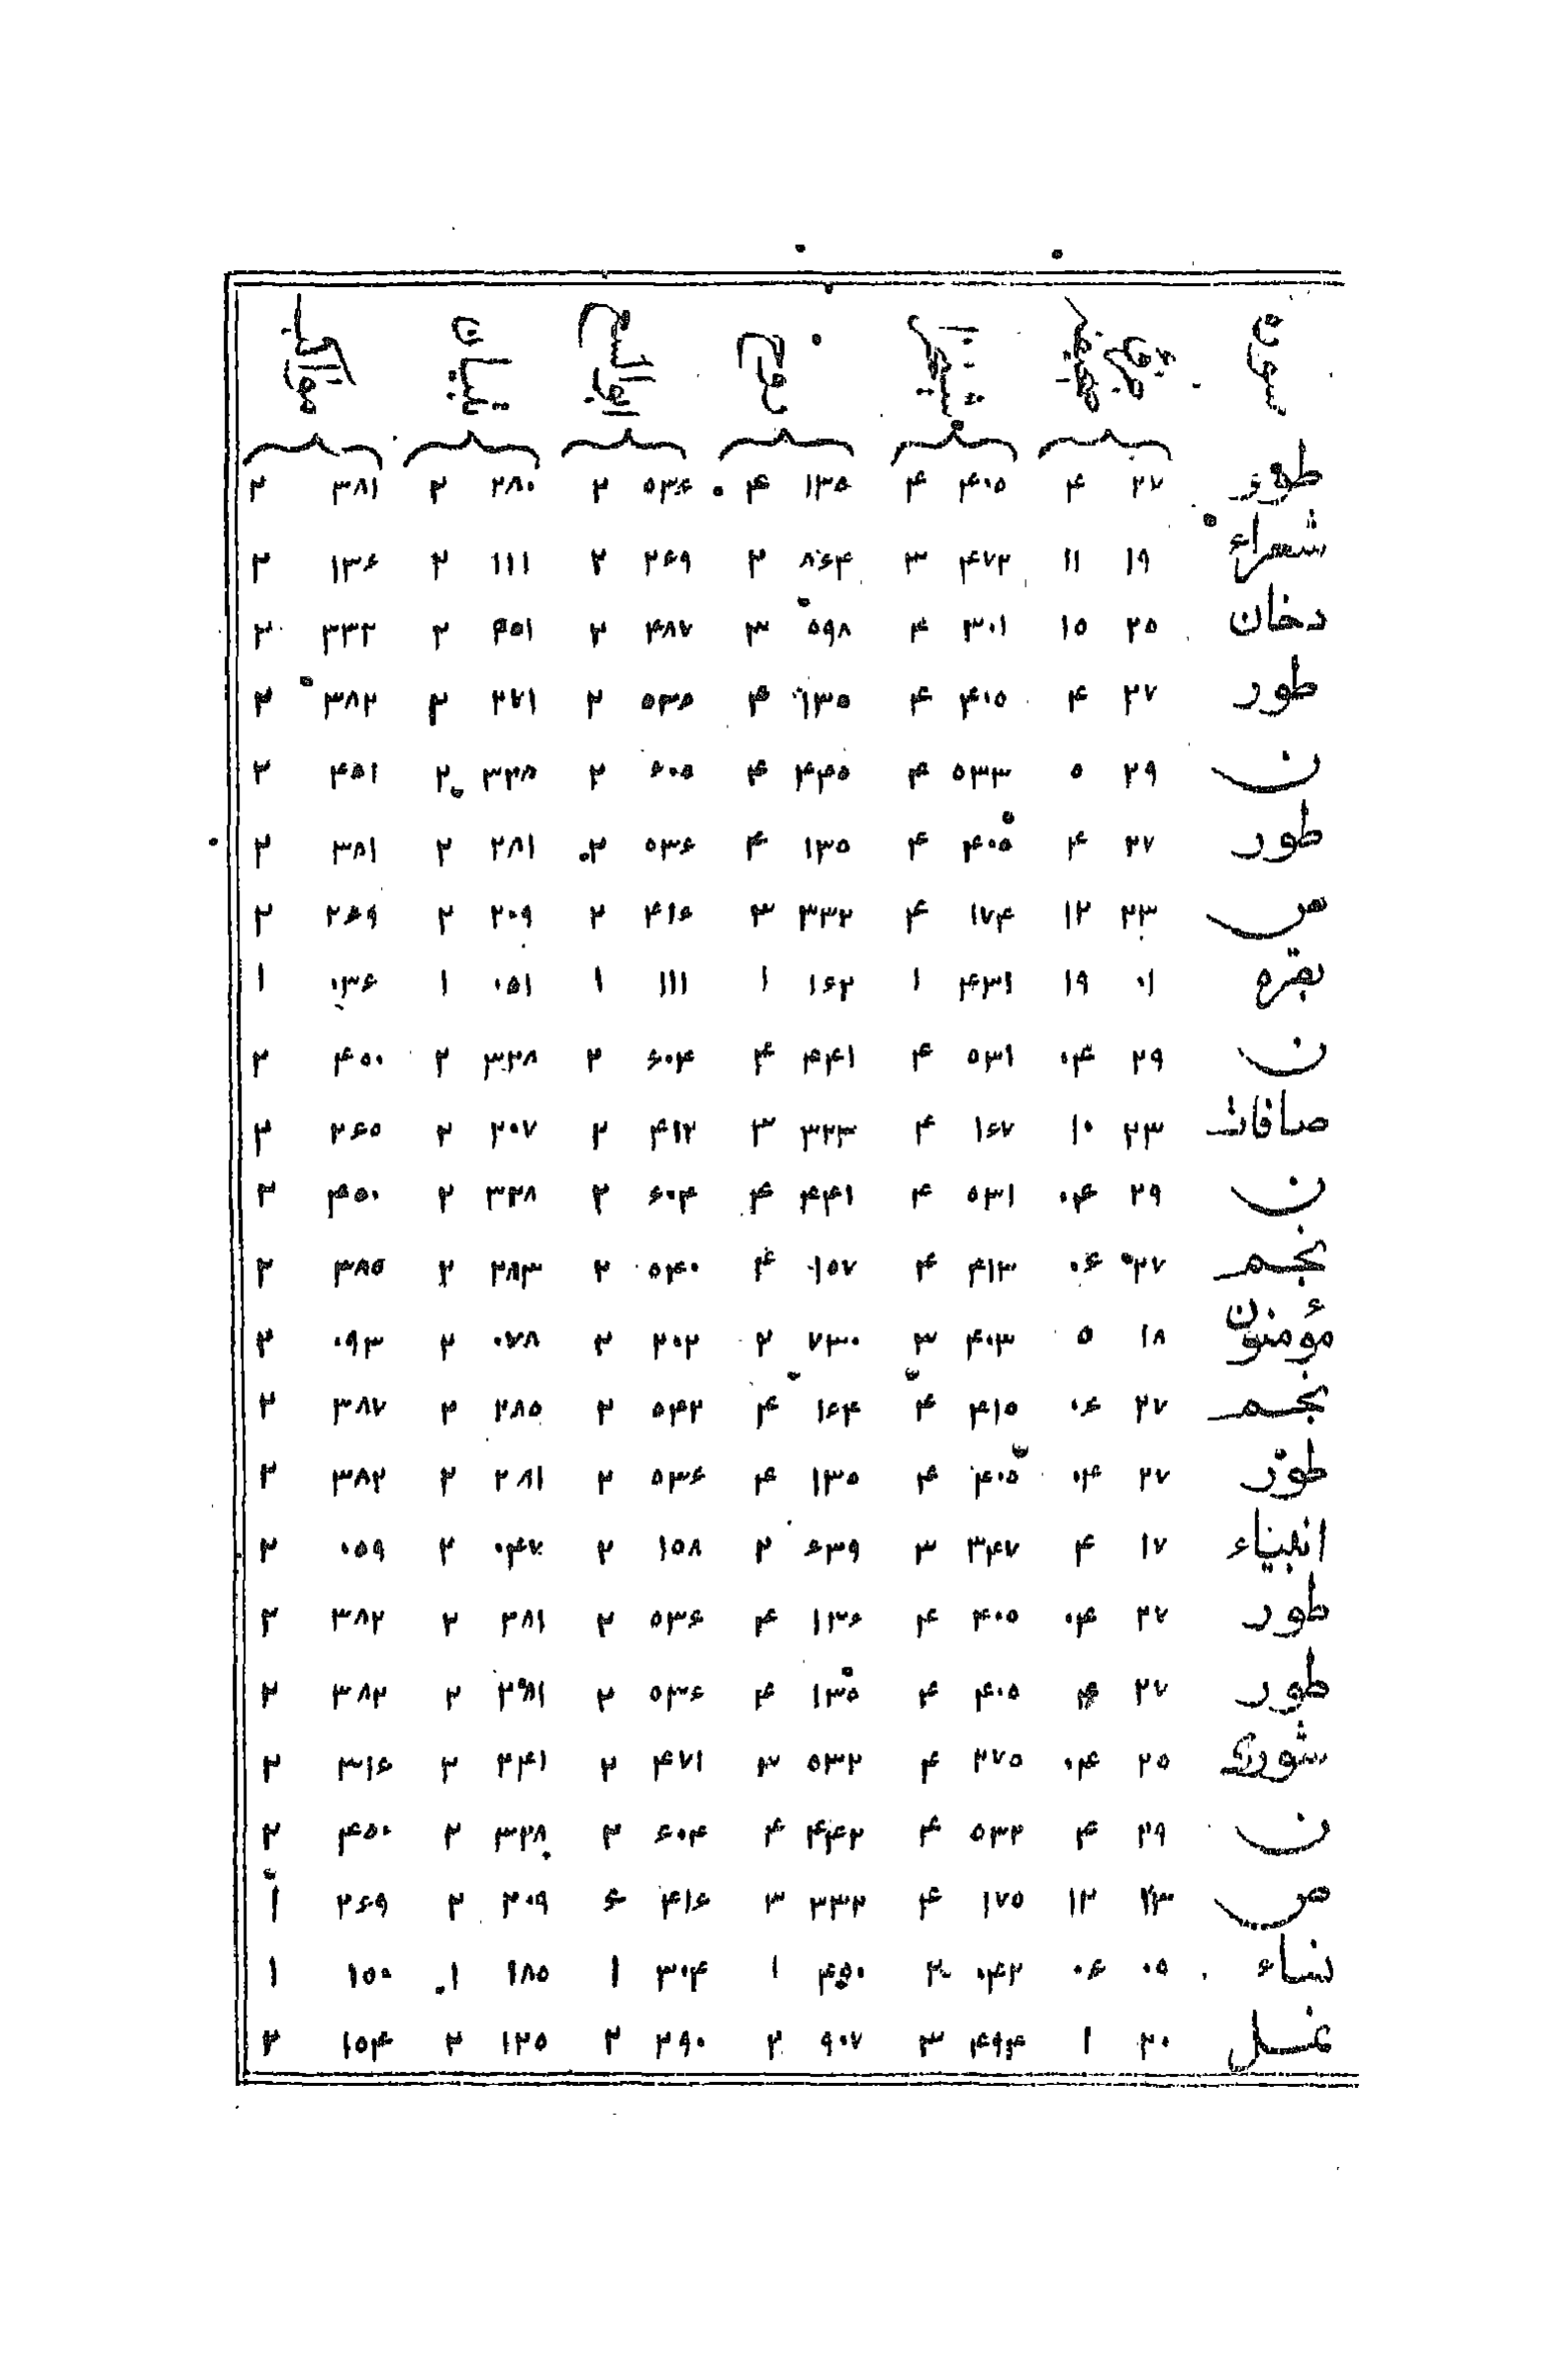 سوره
طور ۲۷ ۴ ۴۰۵ ۴ ۱۳۵ ۴ ۵۳۶ ۲ ۲۸۰ ۲ ۳۸۱ ۲
شعراء ۱۹ ۱۱ ۴۷۲ ۳ ۸۶۴ ۲ ۲۶۹ ۲ ۱۱۱ ۲ ۱۳۶ ۲
دخان ۲۵ ۱۵ ۳۰۱ ۴ ۵۹۸ ۳ ۴۸۷ ۲ ۲۵۱ ۲ ۳۳۲ ۲
طور ۲۷ ۴ ۴۰۵ ۴ ۱۳۵ ۴ ۵۳۵ ۲ ۲۷۱ ۲ ۳۸۲ ۲
ن ۲۹ ۵ ۵۳۳ ۴ ۴۴۵ ۴ ۶۰۵ ۲ ۳۲۸ ۲ ۴۵۱ ۲
طور ۲۷ ۴ ۴۰۵ ۴ ۱۳۵ ۴ ۵۳۶ ۲ ۲۸۱ ۲ ۳۸۱ ۲
ص ۲۳ ۱۲ ۱۷۴ ۴ ۳۳۲ ۳ ۴۱۶ ۲ ۲۰۹ ۲ ۲۶۹ ۲
بقره ۰۱ ۱۹ ۴۳۱ ۱ ۱۶۲ ۱ ۱۱۱ ۱ ۰۵۱ ۱ ۰۳۶ ۱
ن ۲۹ ۰۴ ۵۳۱ ۴ ۴۴۱ ۴ ۶۰۴ ۲ ۳۲۸ ۲ ۴۵۰ ۲
صافات ۲۳ ۱۰ ۱۶۷ ۴ ۳۲۳ ۳ ۴۱۲ ۲ ۲۰۷ ۲ ۲۶۵ ۲
ن ۲۹ ۰۴ ۵۳۱ ۴ ۴۴۱ ۴ ۶۰۴ ۲ ۳۲۸ ۲ ۴۵۰ ۲
نجم ۲۷ ۰۶ ۴۱۳ ۴ ۱۵۷ ۴ ۵۴۰ ۲ ۲۸۳ ۲ ۳۸۵ ۲
مؤمنون ۱۸ ۵ ۴۰۳ ۳ ۷۳۰ ۲ ۲۰۲ ۲ ۰۷۸ ۲ ۰۹۳ ۲
نجم ۲۷ ۰۶ ۴۱۵ ۴ ۱۶۴ ۴ ۵۴۲ ۲ ۲۸۵ ۲ ۳۸۷ ۲
طور ۲۷ ۰۴ ۴۰۵ ۴ ۱۳۵ ۴ ۵۳۶ ۲ ۲۸۱ ۲ ۳۸۲ ۲
انبیاء ۱۷ ۴ ۳۴۷ ۳ ۶۳۹ ۲ ۱۵۸ ۲ ۰۴۷ ۲ ۰۵۹ ۲
طور ۲۷ ۰۴ ۴۰۵ ۴ ۱۳۶ ۴ ۵۳۶ ۲ ۲۸۱ ۲ ۳۸۲ ۲
طور ۲۷ ۴ ۴۰۵ ۴ ۱۳۵ ۴ ۵۳۶ ۲ ۲۸۱ ۲ ۳۸۲ ۲
شوری ۲۵ ۰۴ ۲۷۵ ۴ ۵۳۲ ۳ ۴۷۱ ۲ ۲۴۱ ۲ ۳۱۶ ۲
ن ۲۹ ۴ ۵۳۲ ۴ ۴۴۲ ۴ ۶۰۴ ۲ ۳۲۸ ۲ ۴۵۰ ۲
ص ۲۳ ۱۲ ۱۷۵ ۴ ۳۳۲ ۳ ۴۱۶ ۶ ۲۰۹ ۲ ۲۶۹ ۱
نساء ۰۵ ۰۶ ۰۴۲ ۲ ۴۵۰ ۱ ۳۰۴ ۱ ۱۸۵ ۱ ۱۵۰ ۱
نمل ۲۰ ۱ ۴۹۴ ۳ ۹۰۷ ۲ ۲۹۰ ۲ ۱۲۵ ۲ ۱۵۴ ۲